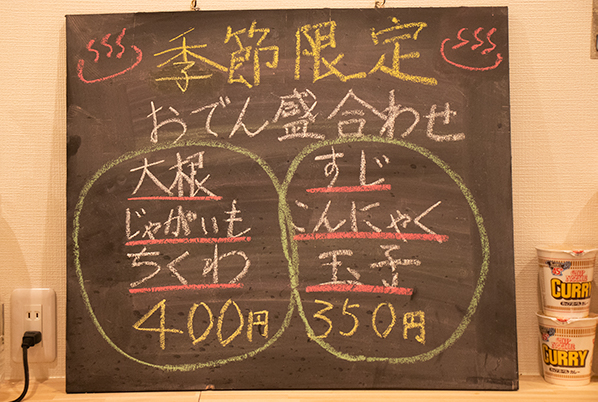 季節限定
おでん盛合わせ
大根
じゃがいも
ちくわ
400円
すじ
こんにゃく
玉子
350円
CURRY
CURRY